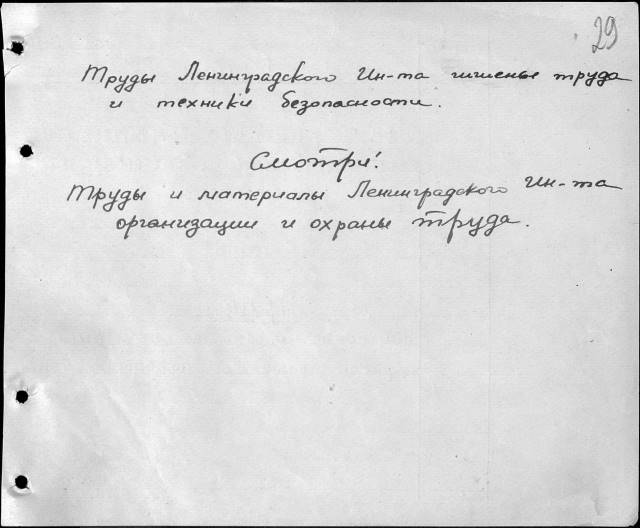 29
Труды Ленинградского Ин-та гигиены труда
и техники безопасности.
Смотри:
Труды и материалы Ленинградского Ин-та
организации и охраны труда.